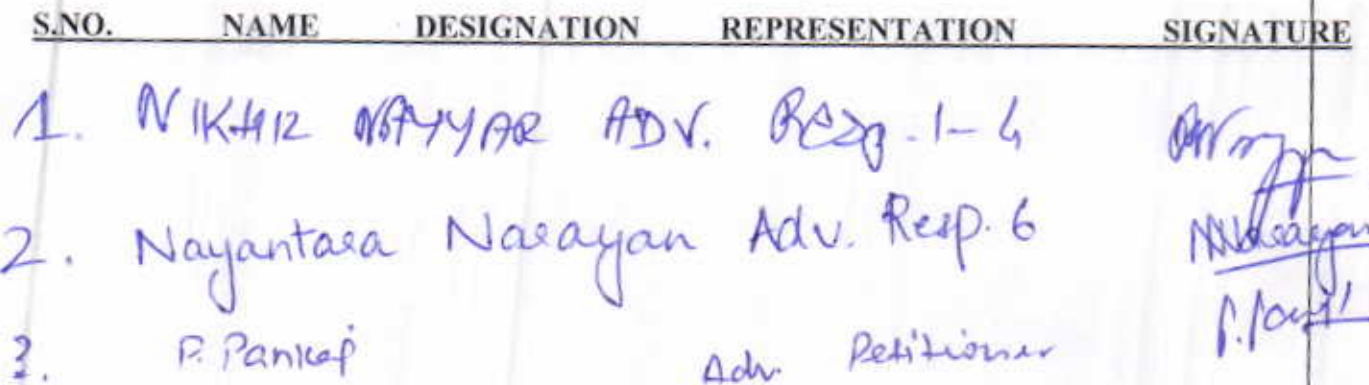 S.NO. NAME DESIGNATION REPRESENTATION SIGNATURE
1. NIKHIL NAYYAR ADV. Resp. 1-4
2. Nayantara Narayan Adv. Resp. 6 NNarayan
3. P. Pankaj Adv. Petitioner